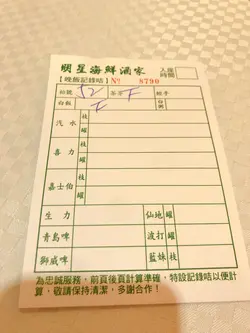 明星海鮮酒家
入座時間
【晚飯記錄咭】 № 8790
枱號 52 茶芥 F 經手
白飯 F
汽水 枝 罐
喜力 枝 罐
嘉士伯 枝 罐
生力 仙地 罐
青島啤 波打 罐
獅威啤 藍妹 枝
為忠誠服務，前頁後頁計算準確，特設記錄咭以便計
算，敬請保持清潔，多謝合作！